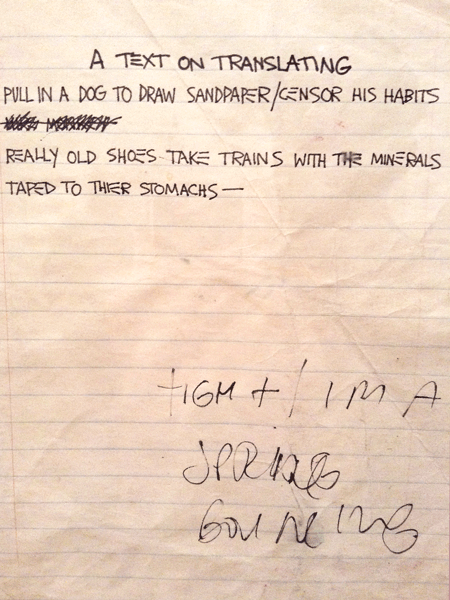 A TEXT ON TRANSLATING
PULL IN A DOG TO DRAW SANDPAPER/CENSOR HIS HABITS
REALLY OLD SHOES TAKE TRAINS WITH THE MINERALS
TAPED TO THIER STOMACHS —
TIGHT / I'M A
SPRING